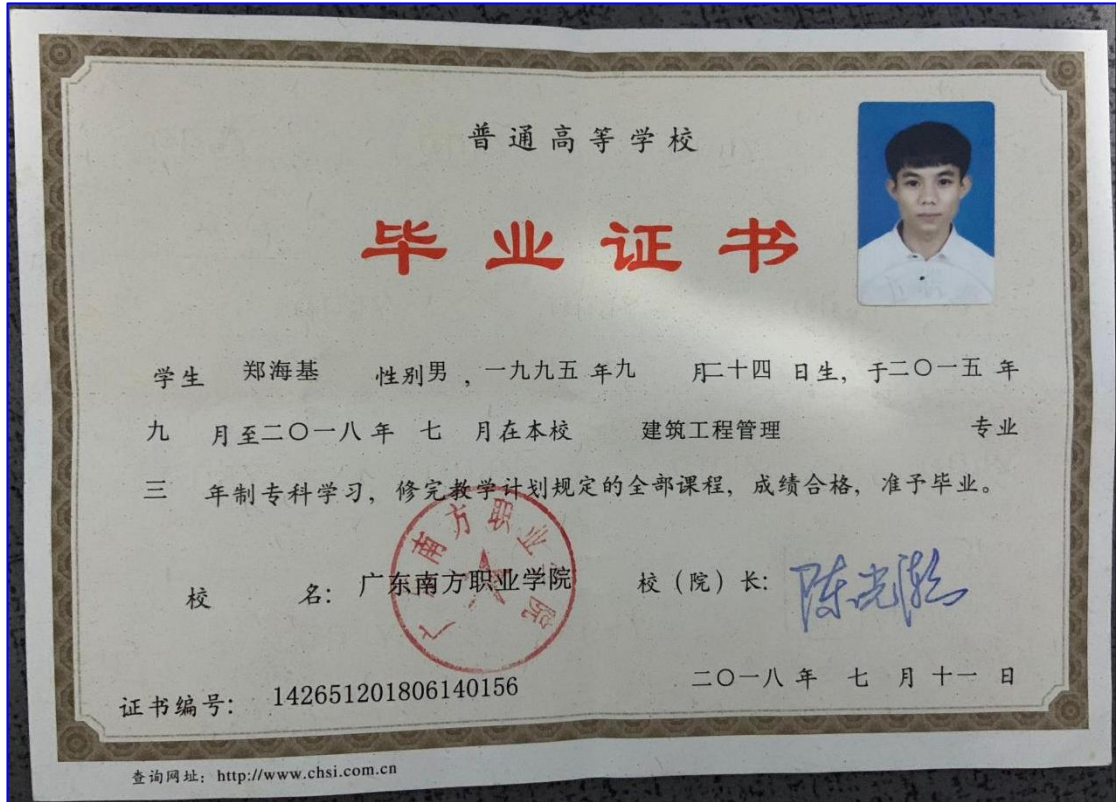 普通高等学校
毕业证书
学生 郑海基 性别男，一九九五年九 月二十四 日生，于二〇一五 年
九 月至二〇一八年 七 月在本校 建筑工程管理 专业
三 年制专科学习，修完教学计划规定的全部课程，成绩合格，准予毕业。
校 名：广东南方职业学院 校（院）长：
广东南方职业学院
二〇一八年 七 月十一 日
证书编号：142651201806140156
查询网址：http://www.chsi.com.cn